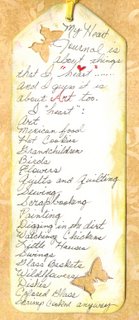 My Heart
Journal is
about things
that I "heart"....
And I guess it is
about Art too.
I "heart":
Art
Mexican food
Hot Cookies
Grandchildren
Birds
Flowers
Quilts and Quilting
Sewing
Scrapbooking
Painting
Digging in the dirt
Watching Chickens
Little Houses
Swings
Glass Baskets
Wildflowers
Dishes
Colored Glass
anyway